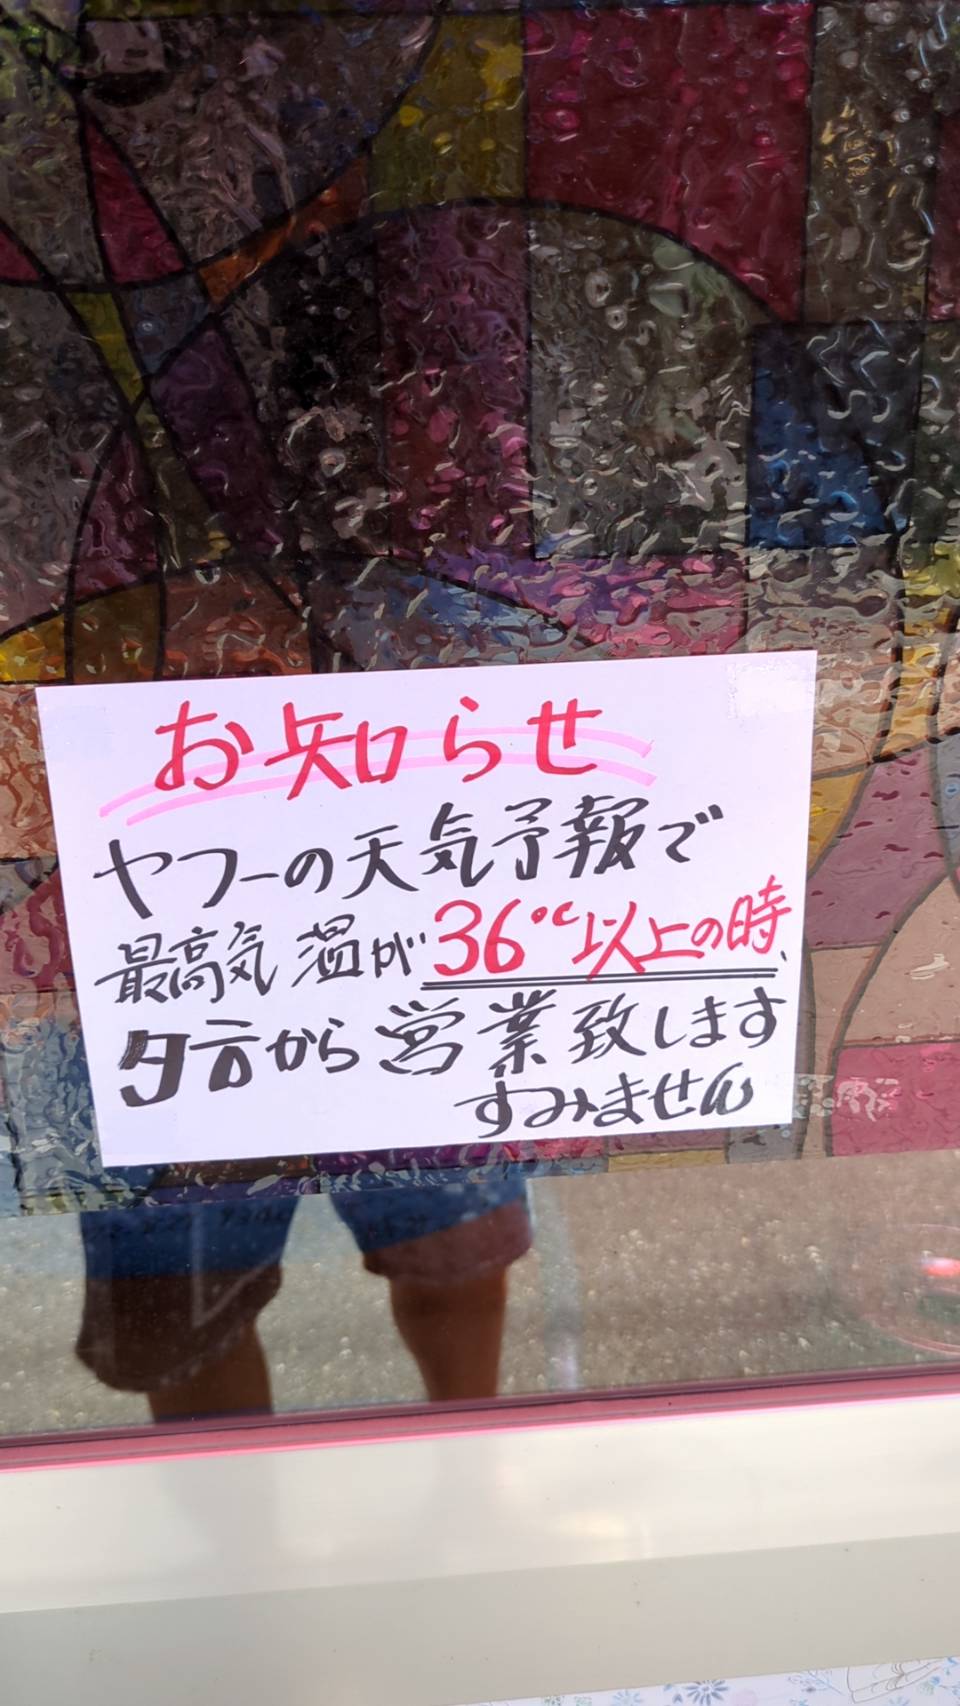 お知らせ
ヤフーの天気予報で
最高気温が36℃以上の時、
夕方から営業致します
すみません